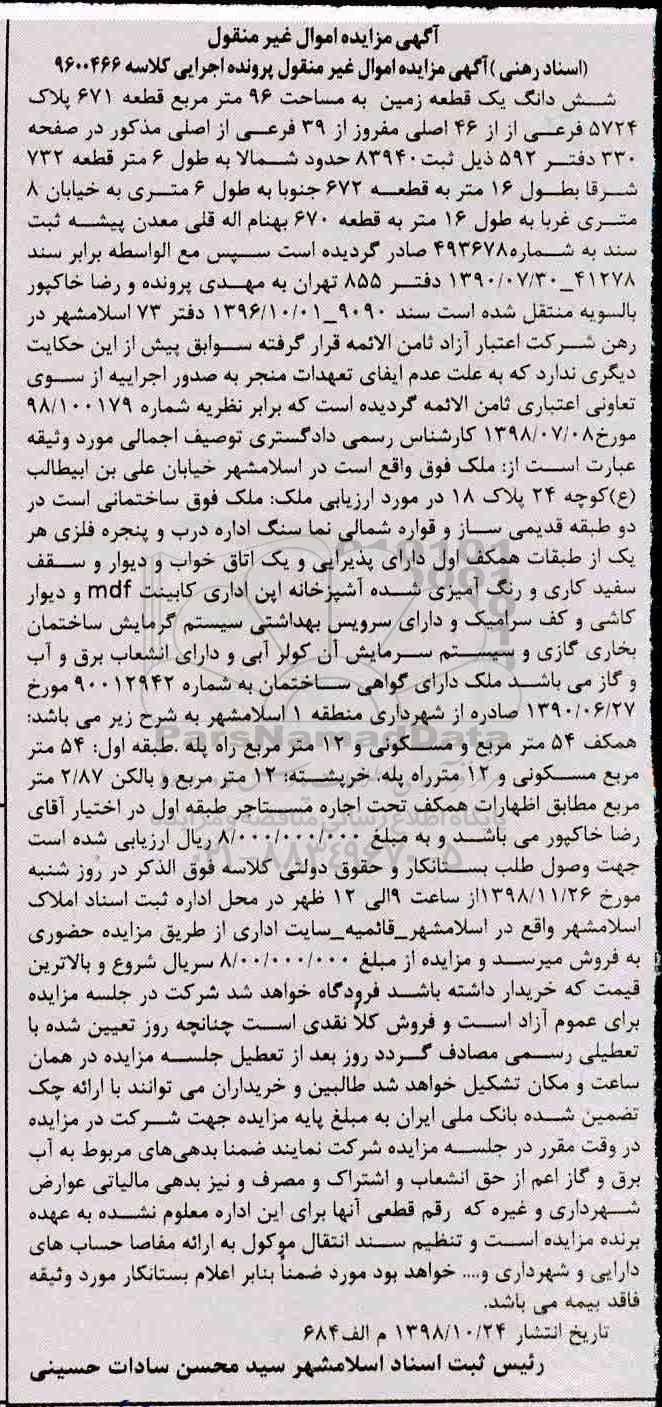 آگهی مزایده اموال غیر منقول
(اسناد رهنی )آگهی مزایده اموال غیر منقول پرونده اجرایی کلاسه ۹۶۰۰۴۶۶
شش دانگ یک قطعه زمین به مساحت ۹۶ متر مربع قطعه ۶۷۱ پلاک
۵۷۲۴ فرعی از از ۴۶ اصلی مفروز از ۳۹ فرعی از اصلی مذکور در صفحه
۳۳۰ دفتر ۵۹۲ ذیل ثبت ۸۳۹۴۰ حدود شمالا به طول ۶ متر قطعه ۷۳۲
شرقا بطول ۱۶ متر به قطعه ۶۷۲ جنوبا به طول ۶ متری به خیابان ۸
متری غربا به طول ۱۶ متر به قطعه ۶۷۰ بهنام اله قلی معدن پیشه ثبت
سند به شماره۴۹۳۶۷۸ صادر گردیده است سپس مع الواسطه برابر سند
۴۱۲۷۸_۱۳۹۰/۰۷/۳۰ دفتر ۸۵۵ تهران به مهدی پرونده و رضا خاکپور
بالسویه منتقل شده است سند ۹۰۹۰_۱۳۹۶/۱۰/۰۱ دفتر ۷۳ اسلامشهر در
رهن شرکت اعتبار آزاد ثامن الائمه قرار گرفته سوابق پیش از این حکایت
دیگری ندارد که به علت عدم ایفای تعهدات منجر به صدور اجراییه از سوی
تعاونی اعتباری ثامن الائمه گردیده است که برابر نظریه شماره ۹۸/۱۰۰۱۷۹
مورخ۱۳۹۸/۰۷/۰۸ کارشناس رسمی دادگستری توصیف اجمالی مورد وثیقه
عبارت است از: ملک فوق واقع است در اسلامشهر خیابان علی بن ابیطالب
(ع)کوچه ۲۴ پلاک ۱۸ در مورد ارزیابی ملک: ملک فوق ساختمانی است در
دو طبقه قدیمی ساز و قواره شمالی نما سنگ اداره درب و پنجره فلزی هر
یک از طبقات همکف اول دارای پذیرایی و یک اتاق خواب و دیوار و سقف
سفید کاری و رنگ آمیزی شده آشپزخانه اپن اداری کابینت mdf و دیوار
کاشی و کف سرامیک و دارای سرویس بهداشتی سیستم گرمایش ساختمان
بخاری گازی و سیستم سرمایش آن کولر آبی و دارای انشعاب برق و آب
و گاز می باشد ملک دارای گواهی ساختمان به شماره ۹۰۰۱۲۹۴۲ مورخ
۱۳۹۰/۰۶/۲۷ صادره از شهرداری منطقه ۱ اسلامشهر به شرح زیر می باشد:
همکف ۵۴ متر مربع و مسکونی و ۱۲ متر مربع راه پله .طبقه اول: ۵۴ متر
مربع مسکونی و ۱۲ مترراه پله. خرپشته: ۱۲ متر مربع و بالکن ۲/۸۷ متر
مربع مطابق اظهارات همکف تحت اجاره مستاجر طبقه اول در اختیار آقای
رضا خاکپور می باشد و به مبلغ ۸/۰۰۰/۰۰۰/۰۰۰ ریال ارزیابی شده است
جهت وصول طلب بستانکار و حقوق دولتی کلاسه فوق الذکر در روز شنبه
مورخ ۱۳۹۸/۱۱/۲۶از ساعت ۹الی ۱۲ ظهر در محل اداره ثبت اسناد املاک
اسلامشهر واقع در اسلامشهر_قائمیه_سایت اداری از طریق مزایده حضوری
به فروش میرسد و مزایده از مبلغ ۸/۰۰/۰۰۰/۰۰۰ سریال شروع و بالاترین
قیمت که خریدار داشته باشد فرودگاه خواهد شد شرکت در جلسه مزایده
برای عموم آزاد است و فروش کلاً نقدی است چنانچه روز تعیین شده با
تعطیلی رسمی مصادف گردد روز بعد از تعطیل جلسه مزایده در همان
ساعت و مکان تشکیل خواهد شد طالبین و خریداران می توانند با ارائه چک
تضمین شده بانک ملی ایران به مبلغ پایه مزایده جهت شرکت در مزایده
در وقت مقرر در جلسه مزایده شرکت نمایند ضمنا بدهی‌های مربوط به آب
برق و گاز اعم از حق انشعاب و اشتراک و مصرف و نیز بدهی مالیاتی عوارض
شهرداری و غیره که رقم قطعی آنها برای این اداره معلوم نشده به عهده
برنده مزایده است و تنظیم سند انتقال موکول به ارائه مفاصا حساب های
دارایی و شهرداری و.... خواهد بود مورد ضمناً بنابر اعلام بستانکار مورد وثیقه
فاقد بیمه می باشد.
تاریخ انتشار ۱۳۹۸/۱۰/۲۴ م الف۶۸۴
رئیس ثبت اسناد اسلامشهر سید محسن سادات حسینی
ParsNamadData